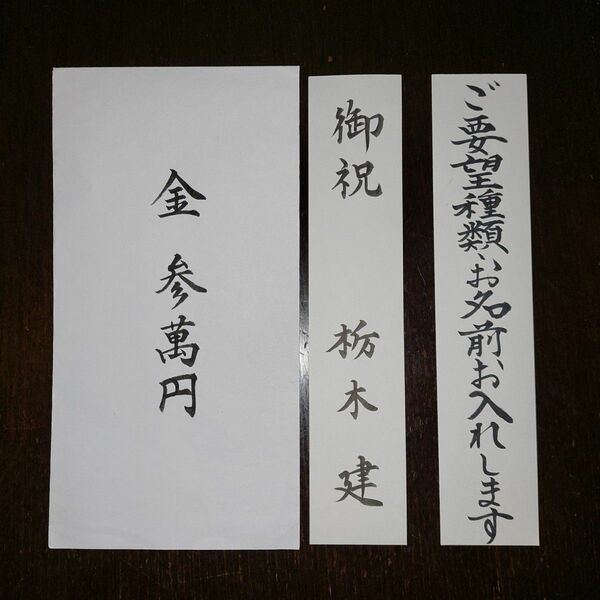 ご要望種類、お名前お入れします
御祝 栃木 建
金 参萬円